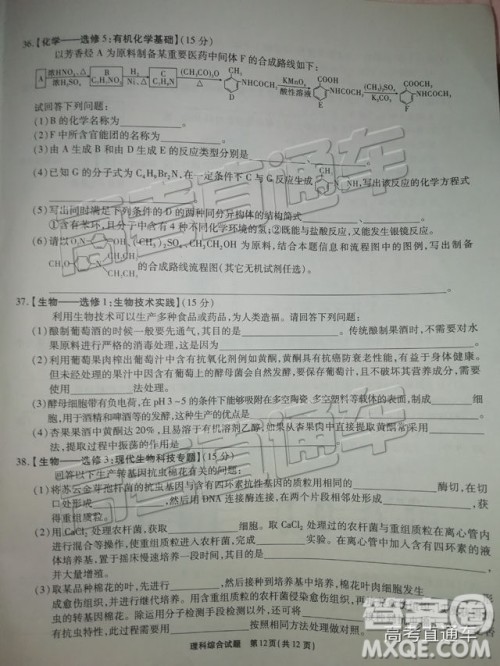 36.【化学——选修5:有机化学基础】(15分)
以芳香烃A为原料制备某重要医药中间体F的合成路线如下:
A 浓HNO₃,△ 浓H₂SO₄ B C₇H₇NO₂ H₂ Ni,△ C C₇H₉N (CH₃CO)₂O CH₃ NHCOCH₃ D KMnO₄ 酸性溶液 NHCOCH₃ E (CH₃)₂SO₄ K₂CO₃ NHCOCH₃ F
试回答下列问题:
(1)B的化学名称为
(2)F中所含官能团的名称为
(3)由A生成B和由D生成E的反应类型分别是
(4)已知G的分子式为C₆H₉Br₂N,在一定条件下C与G反应生成 NH₂,写出该反应的化学方程式
(5)写出同时满足下列条件的D的两种同分异构体的结构简式
①含有苯环,且分子中含有4种不同化学环境的氢;②既能与盐酸反应,又能发生银镜反应。
(6)请以 (CH₃)₂SO₄ CH₃CH₂OH为原料,结合本题信息和流程图中的范例,写出制备
的合成路线流程图(其它无机试剂任选)。
37.【生物——选修1:生物技术实践】(15分)
利用生物技术可以生产多种食品或药品,为人类造福。请回答下列问题:
(1)酿制葡萄酒的时候一般要先通气,其目的是 。传统酿制果酒时,不需要对水
果原料进行严格的消毒处理,这是因为
(2)利用葡萄果肉榨出葡萄汁中含有抗氧化剂例如黄酮,黄酮具有抗癌防衰老性能,有益于身体健康。
但未经处理的果汁中因含有葡萄表皮上的酵母菌会自然发酵,要保存葡萄汁,且不破坏其有效成分,
一般使用 法处理。
(3)酵母细胞带有负电荷,在pH 3~5的条件下能够吸附在多空陶瓷 多空塑料等载体的表面,制成 细
胞,用于酒精和啤酒等的发酵,这种生产的优点是
(4)杏果果酒中黄酮达20%,且易溶于有机溶剂乙醇,如果从杏果肉中直接提取黄酮可以采用
法,提取过程中振荡的作用是
38.【生物——选修3:现代生物科技专题】(15分)
回答以下生产转基因抗虫棉花有关的问题:
(1)将苏云金芽孢杆菌的抗虫基因与含有四环素抗性基因的质粒用相同的 酶切,在切
口处形成 ,然后用DNA连接酶连接,在两个片段相邻处形成 ,获
得重组质粒。
(2)用CaCl₂处理农杆菌,获取 细胞。取CaCl₂处理过的农杆菌与重组质粒在离心管内
进行混合等操作,使重组质粒进入农杆菌,完成 实验。在离心管中加入含有四环素的液
体培养基,置于摇床慢速培养一段时间,其目的是
并大量增殖。
(3)取某品种棉花的叶,先进行 ,然后接种到培养基中培养,棉花叶肉细胞
成愈伤组织,并进行继代培养。用含重组质粒的农杆菌侵染愈伤组织,
回收棉花转基因植株。除运用分子检测手段外,还
有抗虫性,此外需要用 相同方法处理做对照。
理科综合试题 第12页(共12页)
高考直通车
答案圈
MXQE.COM
高考直通车